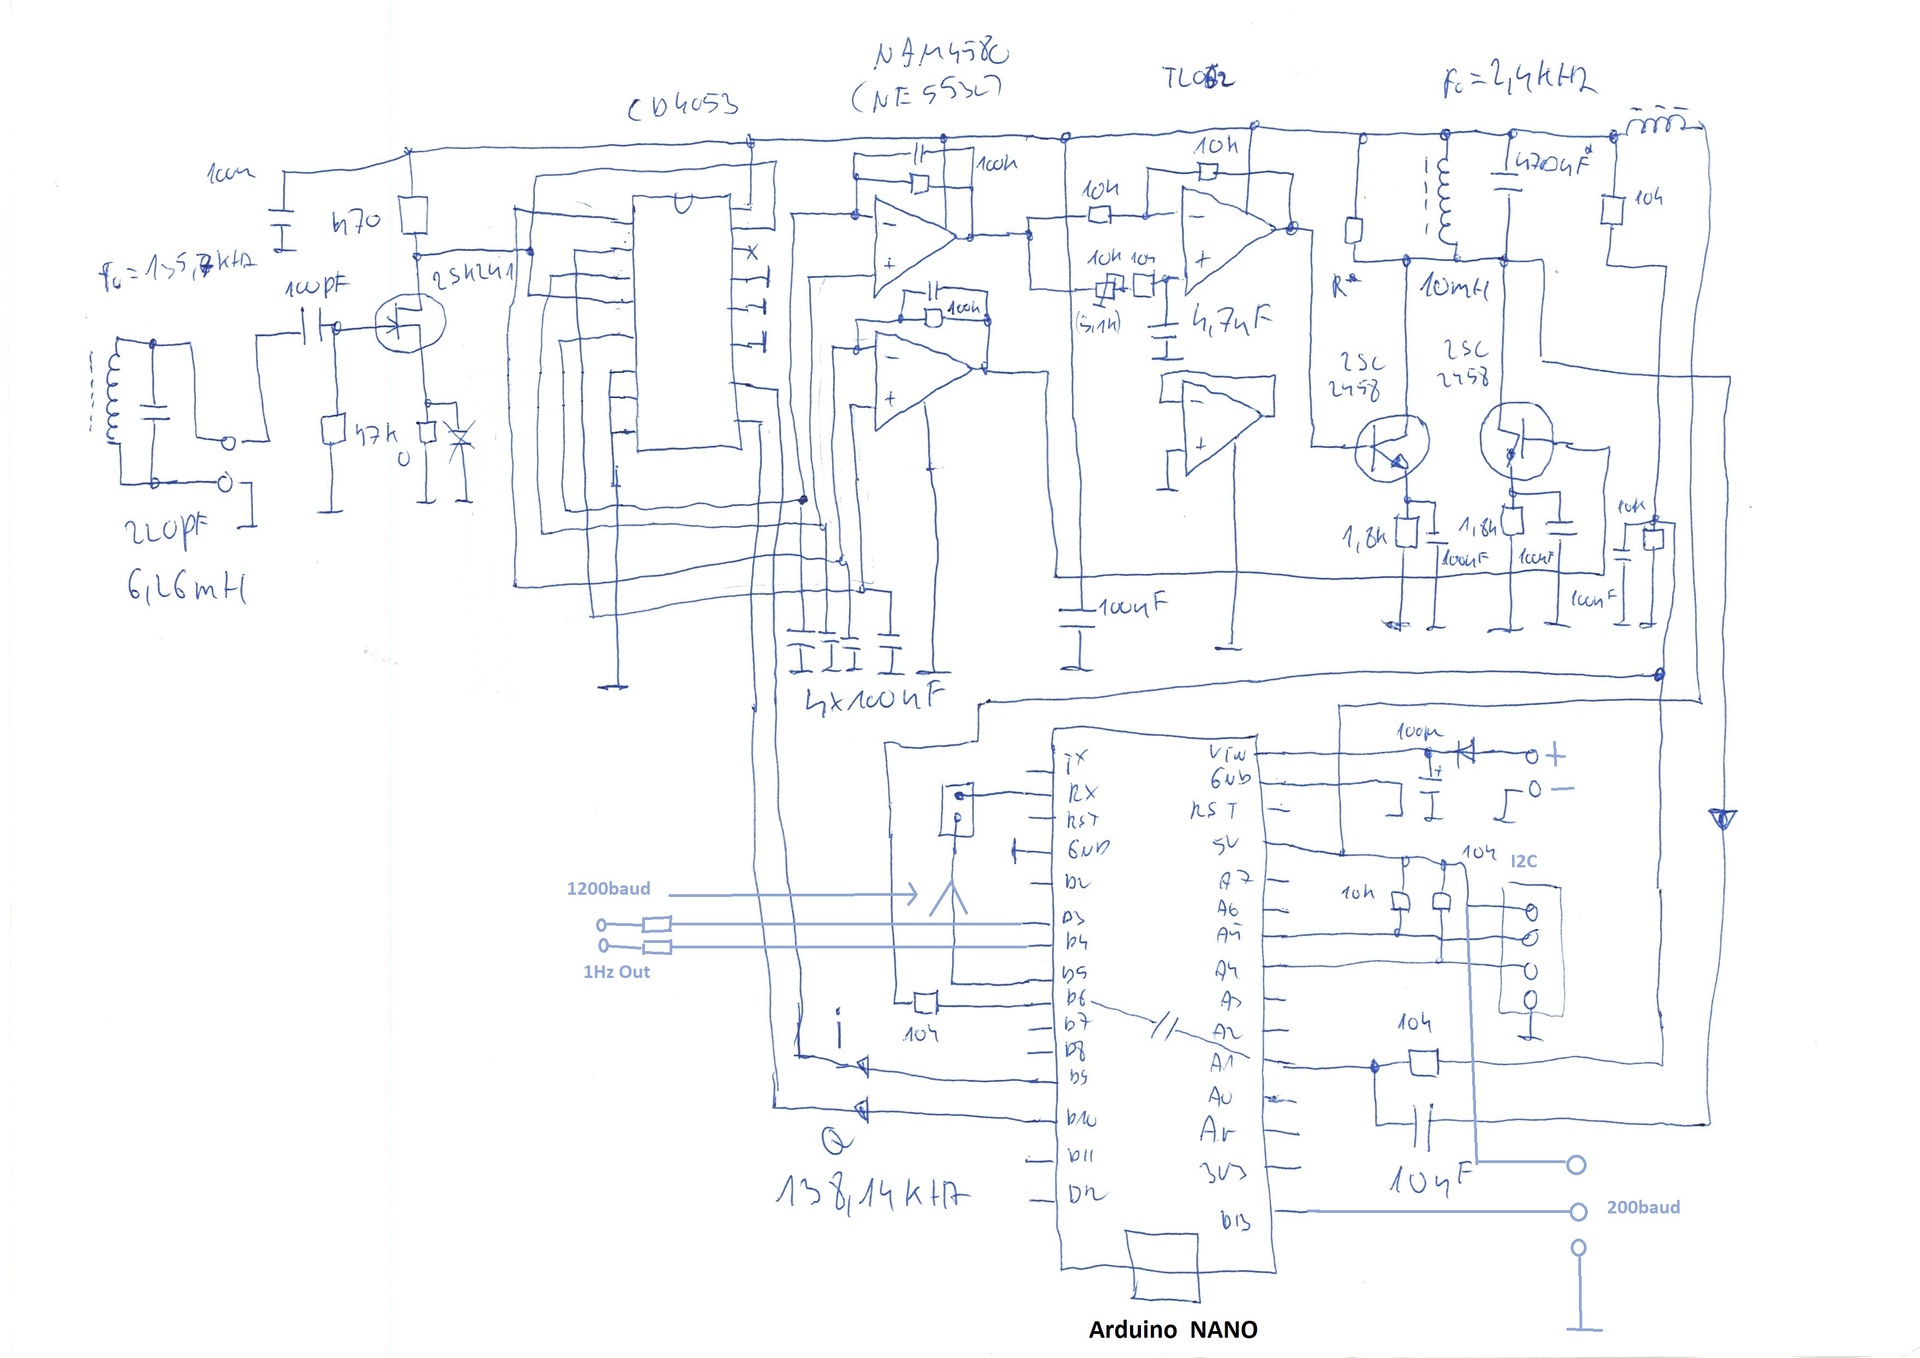 CD4053
NJM4580
(NE5532)
TL062
F0=2,4kHz
100n
470
2SK241
f0=135,7kHz
100pF
47k
0
220pF
6,26mH
100k
100k
10k
10k
10k
10k
(5,1k)
4,7nF
R*
10mH
470nF*
10k
2SC
2458
2SC
2458
1,8k
100nF
1,8k
100nF
10k
100nF
100nF
4x100nF
TX
RX
RST
GND
D2
D3
D4
D5
D6
D7
D8
D9
D10
D11
D12
VIN
GND
RST
5V
A7
A6
A5
A4
A3
A2
A1
A0
Ar
3V3
D13
100µ
+
+
−
10k
10k
I2C
1200baud
1Hz Out
10k
i
Q
138,14kHz
10k
10nF
200baud
Arduino NANO